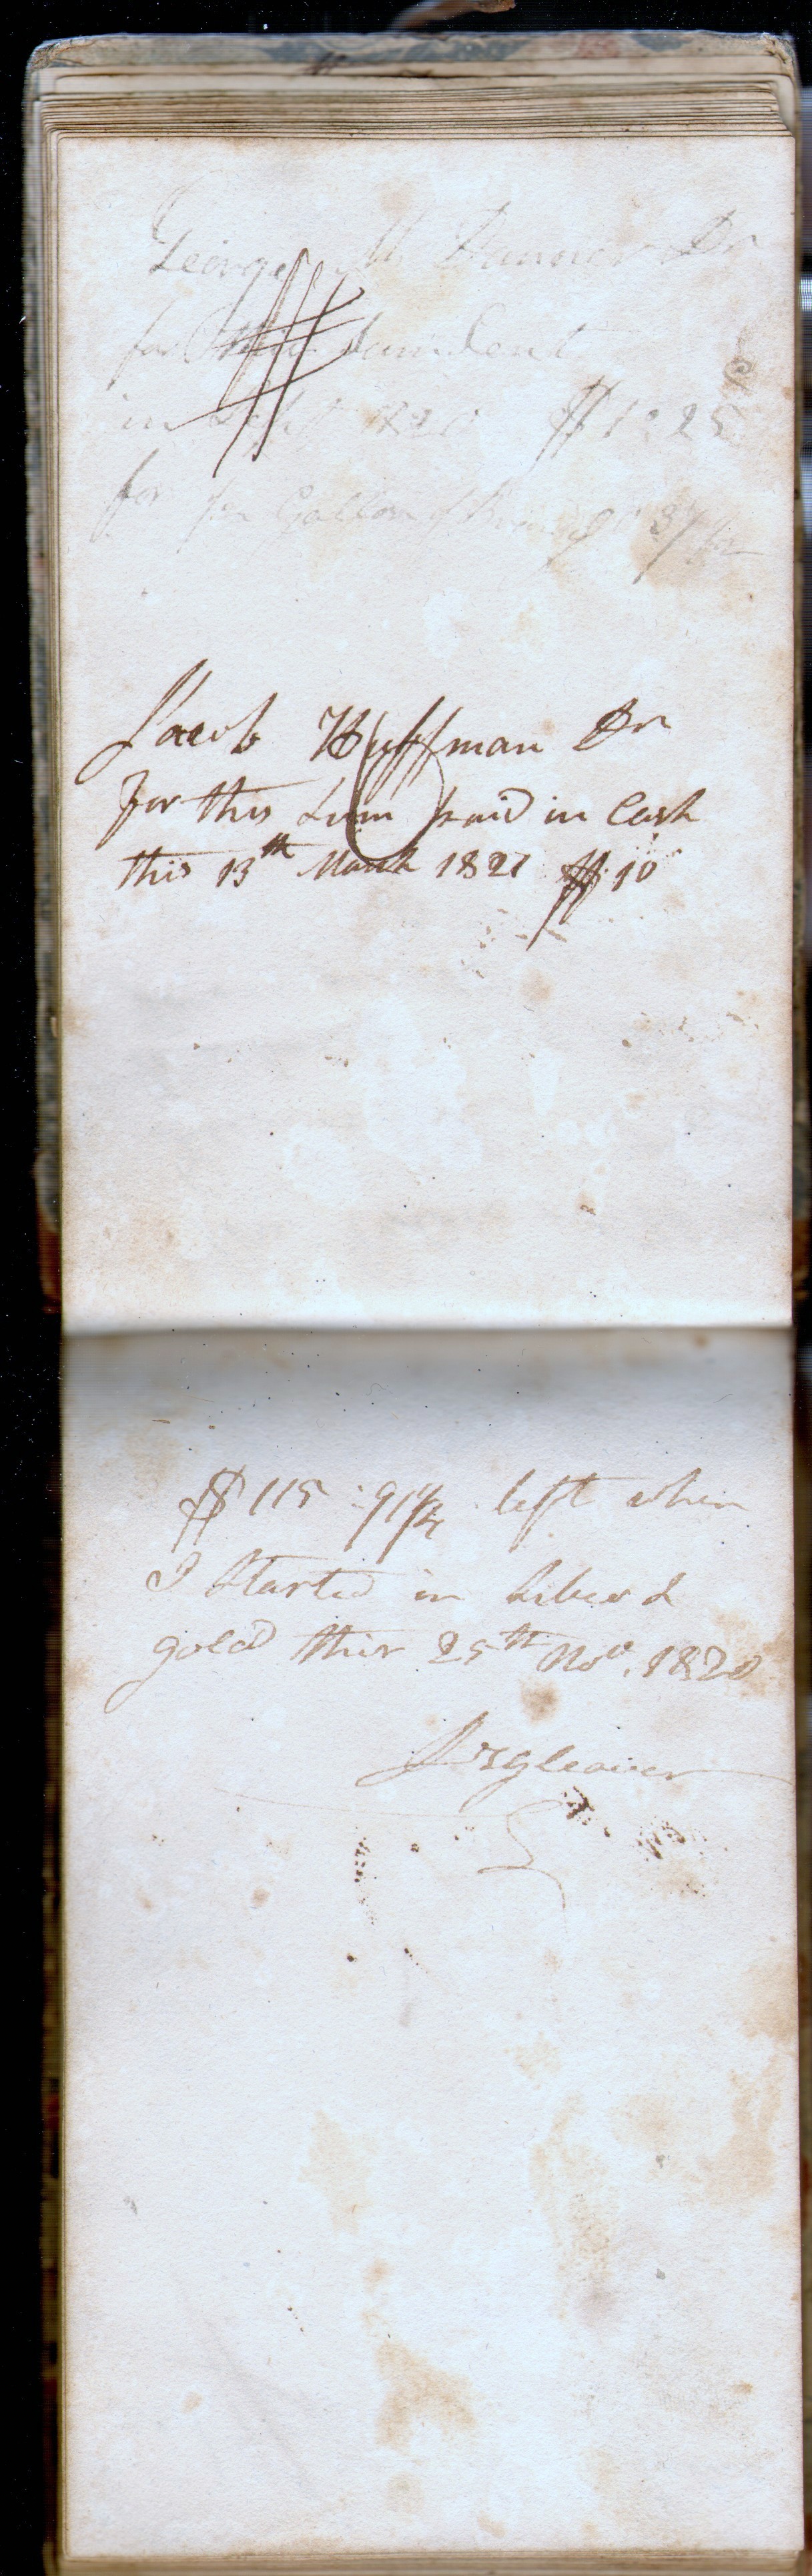 George M Danner Dr
for this sum lent
in Sept 1820 $1.25
for Gallon of
Jacob Huffman Dr
for this Sum paid in Cash
this 13th March 1821 $10
$115.91 1/4 left when
I Started in Silver &
gold this 25th Nov. 1820